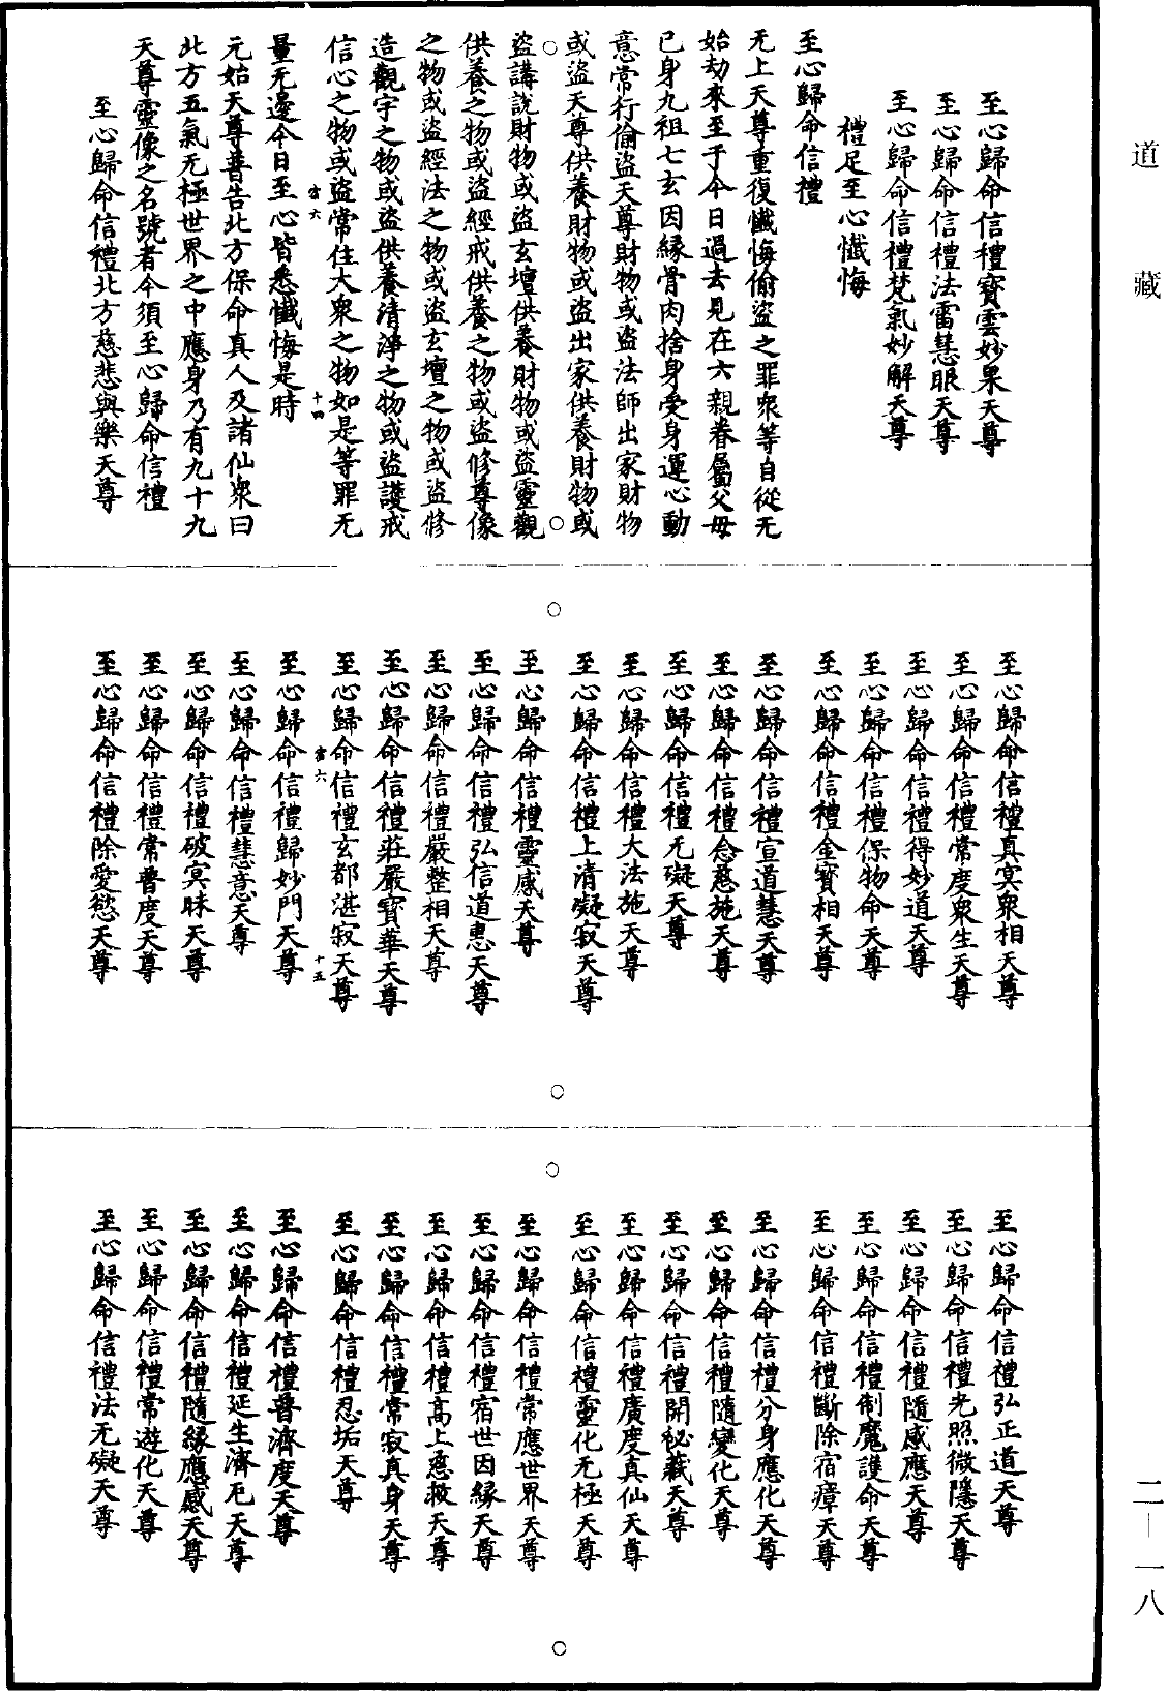 道藏
至心歸命信禮寶雲妙果天尊
至心歸命信禮法雷慧眼天尊
至心歸命信禮梵氣妙解天尊
禮足至心懺悔
至心歸命信禮
无上天尊重復懺悔偷盜之罪衆等自從无
始劫來至于今日過去見在六親眷屬父母
已身九祖七玄因緣骨肉捨身受身運心動
意常行偷盜天尊財物或盜法師出家財物
或盜天尊供養財物或盜出家供養財物或
盜講說財物或盜玄壇供養財物或盜靈觀
供養之物或盜經戒供養之物或盜修尊像
之物或盜經法之物或盜玄壇之物或盜修
造觀宇之物或盜供養清淨之物或盜護戒
信心之物或盜常住大衆之物如是等罪无
十四
量无邊今日至心皆悉懺悔是時
元始天尊普告北方保命真人及諸仙衆曰
北方五氣无極世界之中應身乃有九十九
天尊靈像之名號者今須至心歸命信禮
至心歸命信禮北方慈悲與樂天尊
至心歸命信禮真寞衆相天尊
至心歸命信禮常度衆生天尊
至心歸命信禮得妙道天尊
至心歸命信禮保物命天尊
至心歸命信禮金寶相天尊
至心歸命信禮宣道慧天尊
至心歸命信禮念慈施天尊
至心歸命信禮无礙天尊
至心歸命信禮大法施天尊
至心歸命信禮上清凝寂天尊
至心歸命信禮靈感天尊
至心歸命信禮弘信道惠天尊
至心歸命信禮嚴整相天尊
至心歸命信禮莊嚴寶華天尊
至心歸命信禮玄都湛寂天尊
十五
至心歸命信禮歸妙門天尊
至心歸命信禮慧意天尊
至心歸命信禮破寞昧天尊
至心歸命信禮常普度天尊
至心歸命信禮除愛慾天尊
至心歸命信禮弘正道天尊
至心歸命信禮光照微隱天尊
至心歸命信禮隨感應天尊
至心歸命信禮制魔護命天尊
至心歸命信禮斷除宿瘴天尊
至心歸命信禮分身應化天尊
至心歸命信禮隨變化天尊
至心歸命信禮開祕藏天尊
至心歸命信禮廣度真仙天尊
至心歸命信禮靈化无極天尊
至心歸命信禮常應世界天尊
至心歸命信禮宿世因緣天尊
至心歸命信禮高上慈救天尊
至心歸命信禮常寂真身天尊
至心歸命信禮忍垢天尊
至心歸命信禮普濟度天尊
至心歸命信禮延生濟厄天尊
至心歸命信禮隨緣應感天尊
至心歸命信禮常遊化天尊
至心歸命信禮法无礙天尊
二—一八